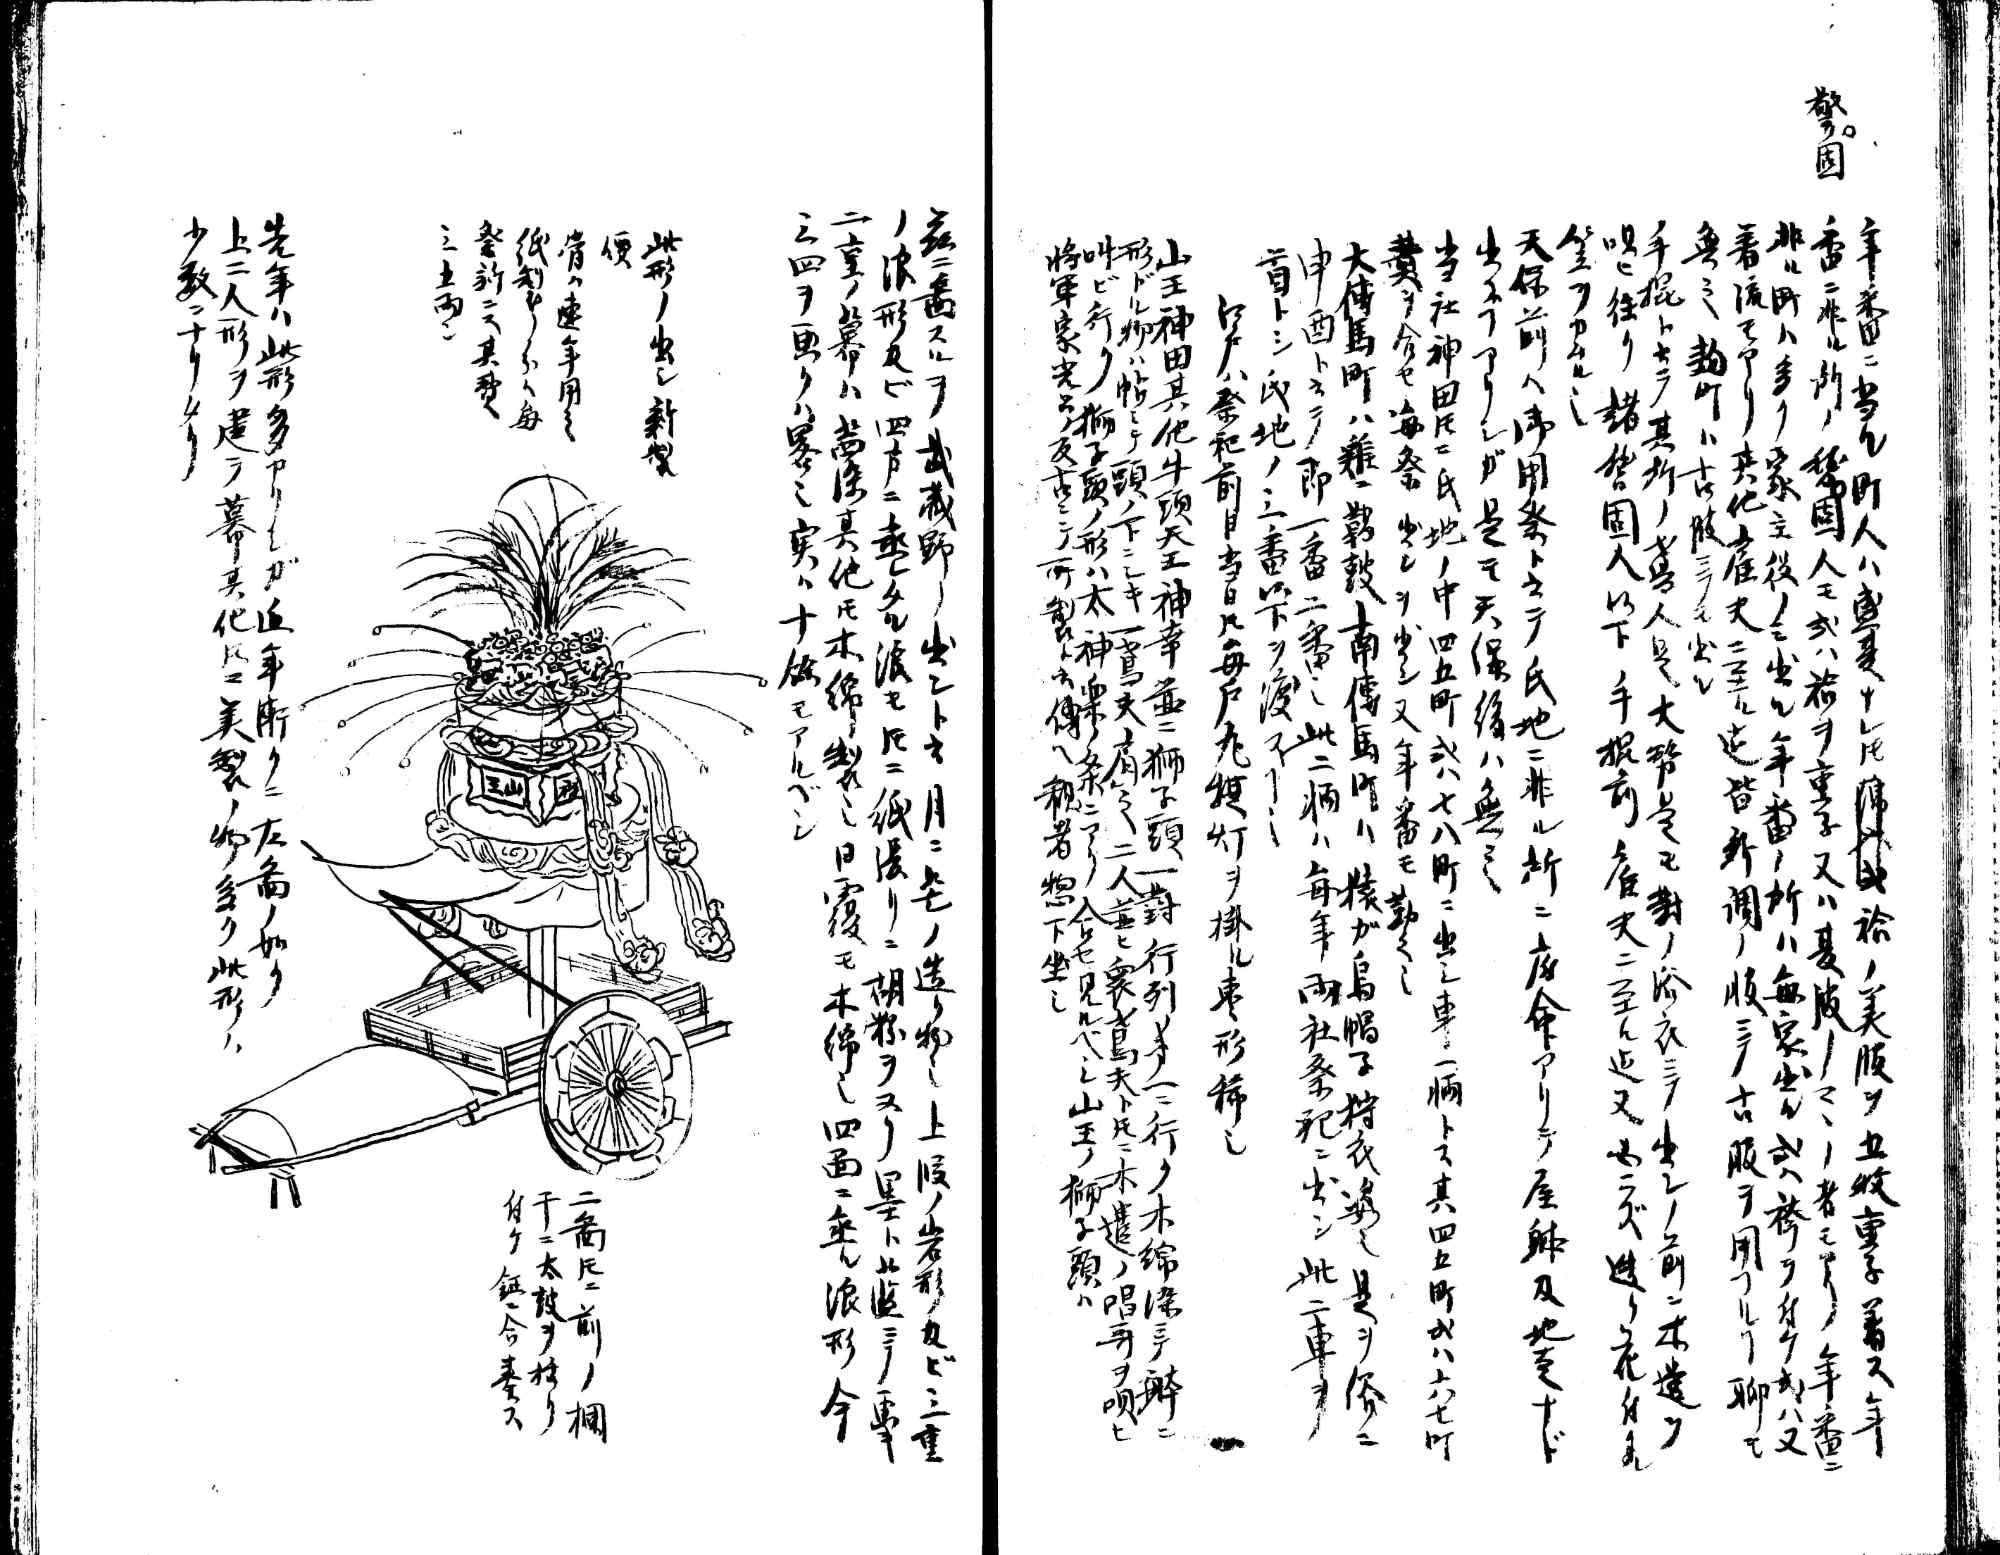 警固
年番ニ当ル町人ハ盛夏ナレ𪜈袷ノ美服ヲ五枚重子着ス年
番ニ非ル所ノ警固人モ或ハ袷ヲ重子又ハ夏服ノマヽノ者モアリ年番ニ
非ル町ハ多ク家主役ノミ出ル年番ノ所ハ毎家出ル或ハ袴ヲ付ケ或ハ又
着流モアリ其他雇夫ニ至ル迄皆新調ノ服ニテ古服ヲ用フル聊モ
無之麹町ハ古服ニテモ出ル
手棍ト云テ其所ノ鳶人是大勢是モ対ノ浴衣ニテ出シノ前ニ木遣ヲ
唄ヒ往ク諸警固人以下手棍前雇夫ニ至ル迄又必ズ造リ花付タル
笠ヲカムル也
天保前ハ御用祭ト云テ氏地ニ非ル所ニ底命アリテ屋躰及地走ナド
出スコアリシガ是モ天保後ハ無之
当社神田𪜈ニ氏地ノ中四五町或ハ七八町ニ出シ車一輌トス其四五町或ハ六七町
費ヲ合セ毎祭出シヲ出シ又年番モ勤ル也
大傳馬町ハ雞ニ諌鼓南傳馬町ハ猿ガ烏帽子狩衣姿也是ヲ俗ニ
申酉ト云テ即一番二番也此二輌ハ毎年両社祭祀ニ出シ此二車ヲ
首トシ氏地ノ三番以下ヲ渡ス
江戸ハ祭祀前日当日𪜈毎戸丸挑灯ヲ掛ル棗形稀也
山王神田其他牛頭天王神幸並ニ獅子頭一対行列ノ前ニ行ク木綿深ニテ
形ドル物ハ帖ミテ頭ノ下ニシキ一鳶夫肩ニ二人並ヒ衆鳶夫𪜈ニ木遣ノ唱哥ヲ唄ヒ
叫ビ行ク獅子頭ノ形ハ太神楽ノ条ニアリ合セ見ルベシ山王ノ獅子頭ハ
将軍家光公ノ反古ニテ所製ト云傳ヘ親者惣下坐ス
茲ニ画スルヲ武蔵野ノ出シト云月ニ芒ノ造リ物也上段ノ岩形及ビ三重
ノ浪形及ビ四方ニ垂タル浪モ𪜈ニ紙張リニ胡粉ヲヌリ墨ト藍ニテ画キ
二重ノ幕ハ茜染其他𪜈木綿製也日覆モ木綿也四面ニ垂ル浪形今
三四ヲ画クハ畧也実ハ十餘モアルベシ
此形ノ出シ新製
價
骨ハ連年用之
紙製等ハ毎
祭新ニス其費
三五両也
二図𪜈ニ前ノ欄
干ニ太鼓ヲ括リ
付ケ鉦合奏ス
先年ハ此形多カリシガ近年漸クニ左図ノ如ク
上ニ人形ヲ建テ幕其他𪜈ニ美製ノ物多ク此形ハ
少数ニナリタリ
山王